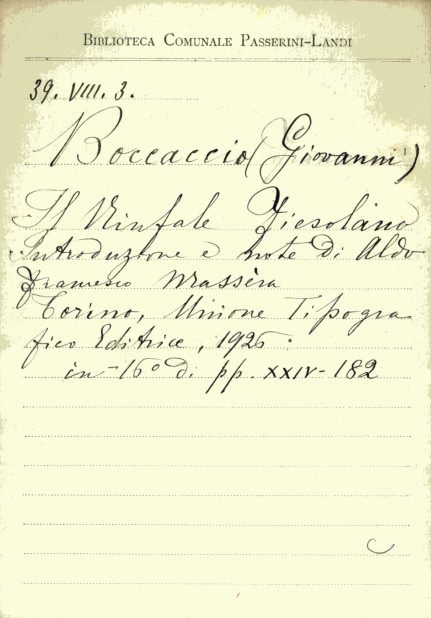 BIBLIOTECA COMUNALE PASSERINI-LANDI
39. VIII. 3.
Boccaccio (Giovanni)
Il Ninfale Fiesolano
Introduzione e note di Aldo
Francesco Massèra
Torino, Unione Tipogra
fico Editrice, 1926.
in-16º di pp. XXIV-182